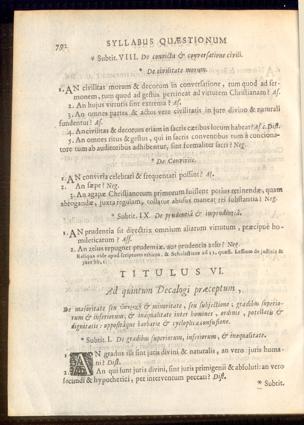 792 SYLLABUS QUÆSTIONUM
* Subtit. VIII. De convictu & conversatione civili.
* De civilitate morum.
1. AN civilitas morum & decorum in conversatione, tum quod ad ser-
monem, tum quod ad gestus pertineat ad virtutem Christianam? Af.
2. An hujus virtutis sint extrema? Af.
3. An omnes partes & actus veræ civilitatis in jure divino & naturali
fundentur? Af.
4. An civilitas & decorum etiam in sacris cœtibus locum habeat? Af. c. Dist.
5. An omnes ritus & gestus, qui in sacris conventibus tum à conciona-
tore tum ab auditoribus adhibentur, sint formaliter sacri? Neg.
* De Conviviis.
1. AN convivia celebrari & frequentari possint? Af.
2. An sæpe? Neg.
3. An agapæ Christianorum primorum fuissent potius retinendæ, quam
abrogandæ, juxta regulam, tollatur abusus maneat rei substantia? Neg.
* Subtit. IX. De prudentiâ & imprudentiâ.
1. AN prudentia sit directrix omnium aliarum virtutum, præcipuè ho-
mileticarum? Aff.
2. An zelus repugnet prudentiæ, aut prudentia zelo? Neg.
TITULUS VI.
Ad quintum Decalogi præceptum,
De majoritate seu & minoritate, seu subjectione; gradibus superio-
rum & inferiorum; & inæqualitate inter homines, ordinis, potestatis &
dignitatis: oppositâque barbarie & cyclopicâ confusione.
* Subtit. I. De gradibus superiorum, inferiorum, & inæqualitate.
1. AN gradus illi sint juris divini & naturalis, an vero juris huma-
ni? Dist.
2. An qui sunt juris divini, sint juris primigenii & absoluti: an vero
secundi & hypothetici, per interventum peccati? Dist.
* Subtit.